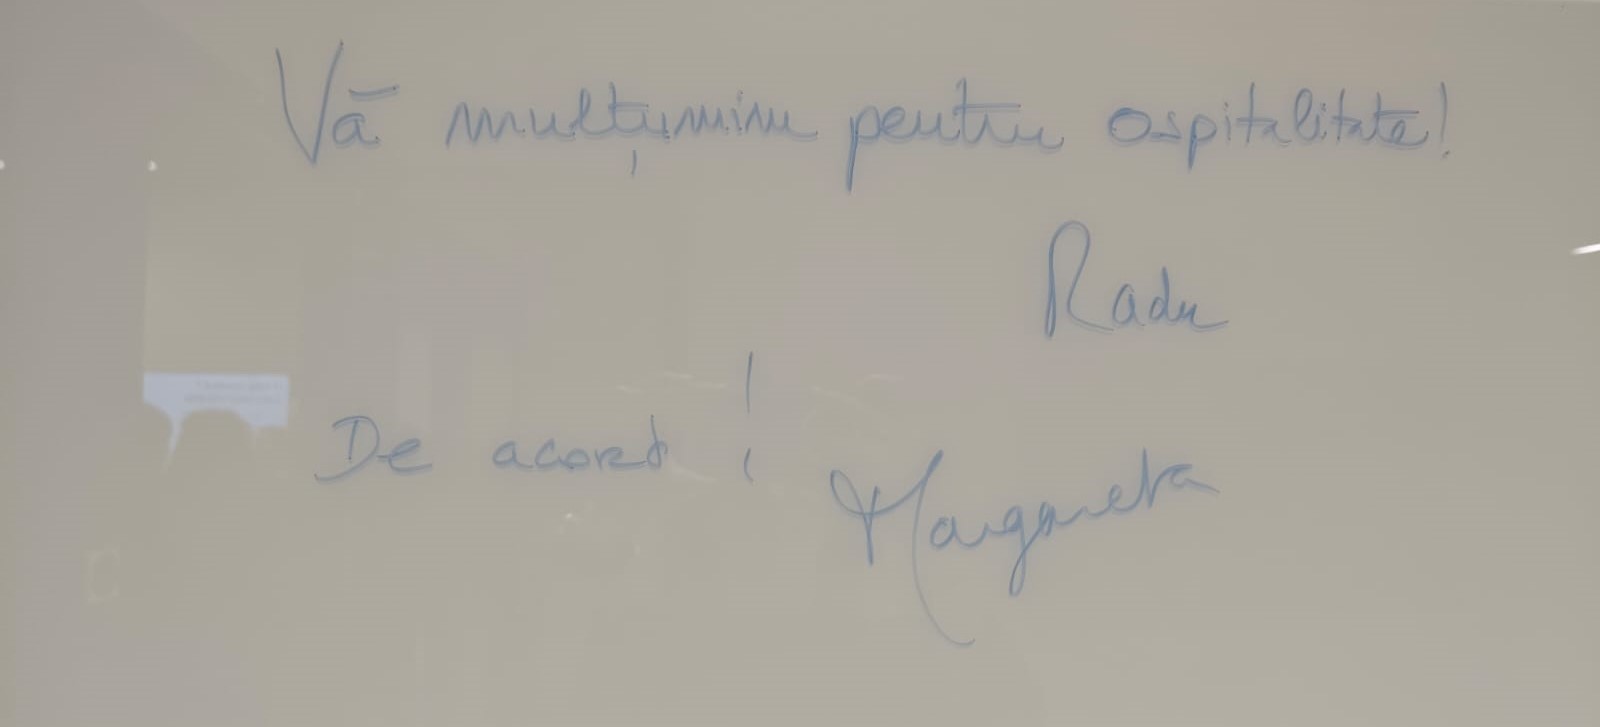 Vă mulțumim pentru ospitalitate!
Radu
De acord!
Margareta